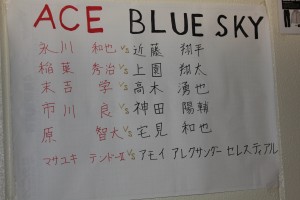 ACE BLUE SKY
氷川 和也 VS 近藤 翔平
稲葉 秀治 VS 上園 翔太
末吉 学 VS 高木 湧也
市川 良 VS 神田 陽輔
原 智大 VS 宅見 和也
マサユキ テンドー VS アモイ アレクサンダー セレスティアル